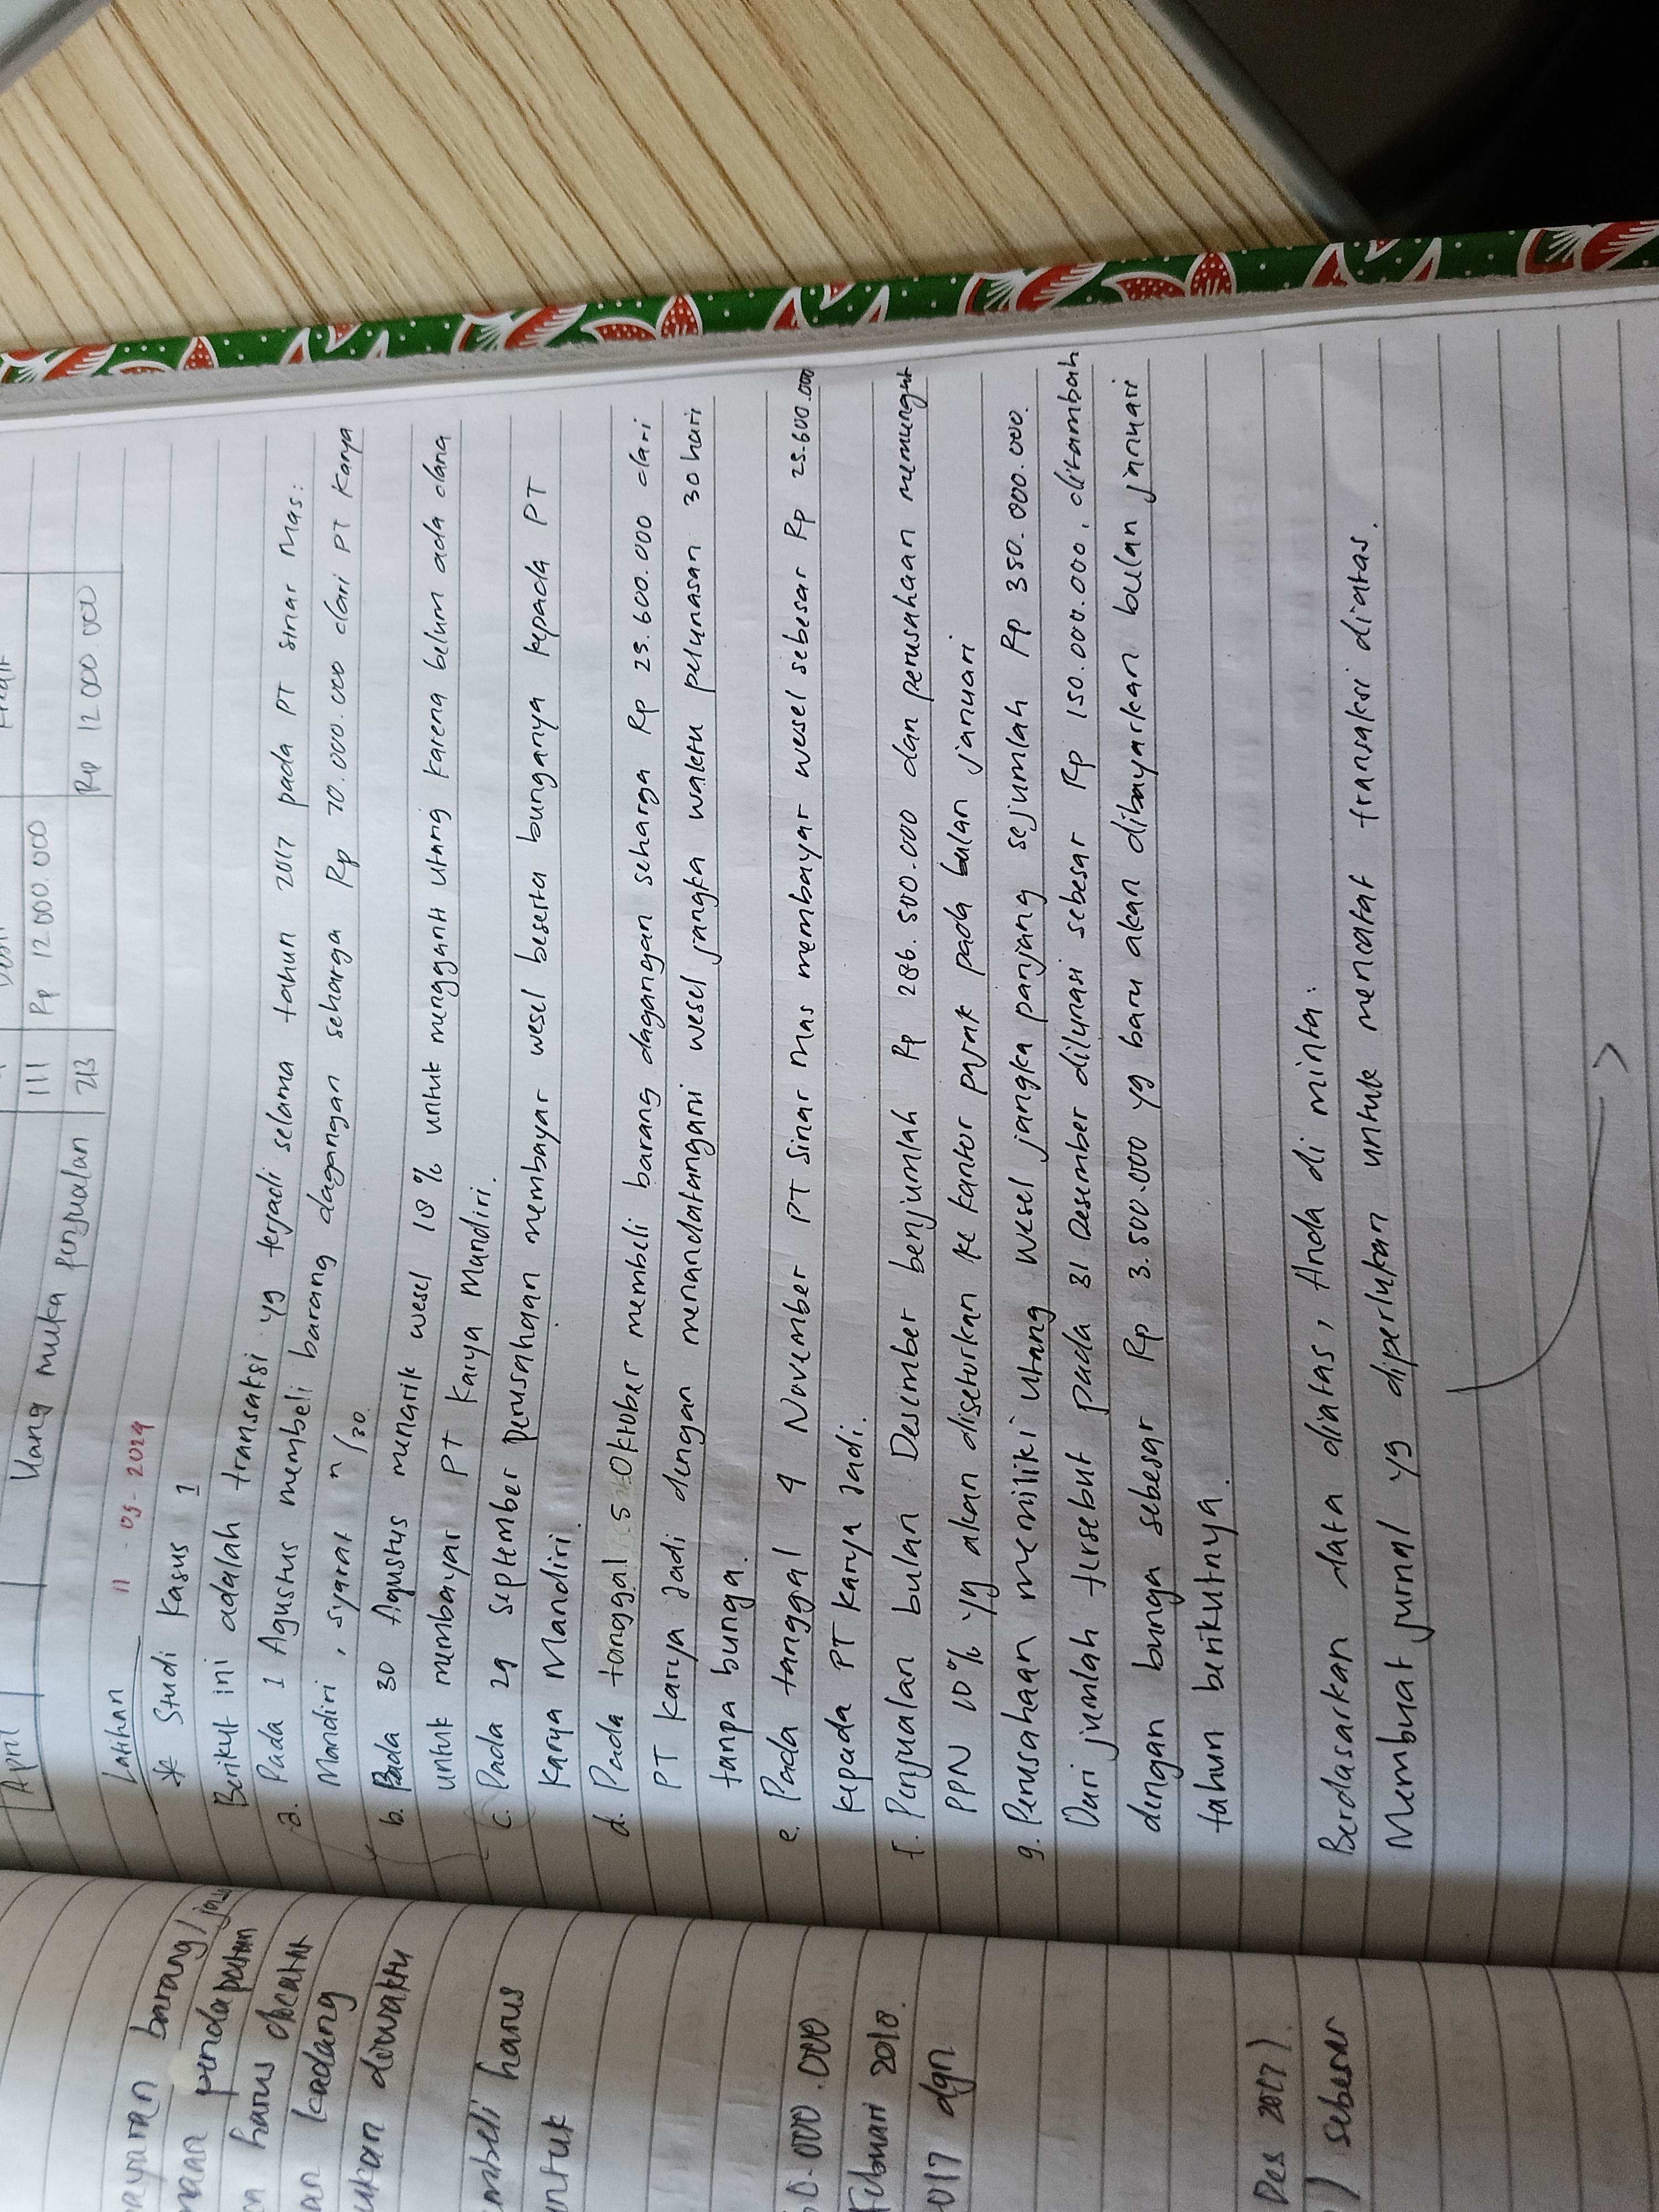 April
Uang muka penjualan
111
Rp 12.000.000
213
Rp 12.000.000
Latihan 11 - 03 - 2024
* Studi Kasus 1
Berikut ini adalah transaksi yg terjadi selama tahun 2017 pada PT Sinar Mas:
a. Pada 1 Agustus membeli barang dagangan seharga Rp 70.000.000 dari PT Karya
Mandiri, syarat n/30.
b. Pada 30 Agustus menarik wesel 18% untuk mengganti utang karena belum ada dana
untuk membayar PT Karya Mandiri.
c. Pada 29 September perusahaan membayar wesel beserta bunganya kepada PT
Karya Mandiri.
d. Pada tanggal 5 Oktober membeli barang dagangan seharga Rp 25.600.000 dari
PT Karya Jadi dengan menandatangani wesel jangka waktu pelunasan 30 hari
tanpa bunga.
e. Pada tanggal 4 November PT Sinar Mas membayar wesel sebesar Rp 25.600.000
kepada PT Karya Jadi.
f. Penjualan bulan Desember berjumlah Rp 286.500.000 dan perusahaan memungut
PPN 10% yg akan disetorkan ke kantor pajak pada bulan januari
g. Perusahaan memiliki utang wesel jangka panjang sejumlah Rp 350.000.000.
Dari jumlah tersebut pada 31 Desember dilunasi sebesar Rp 150.000.000, ditambah
dengan bunga sebesar Rp 3.500.000 yg baru akan dibayarkan bulan januari
tahun berikutnya.
Berdasarkan data diatas, Anda di minta:
Membuat jurnal yg diperlukan untuk mencatat transaksi diatas.
barang/
pendapatan
harus dicatat
kadang
diwaktu
harus
.000.000
Februari 2018.
017 dgn
Des 2017).
) sebesar